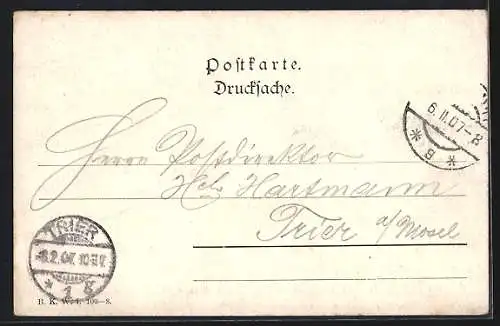 Postkarte.
Drucksache.
6.II.07-8
* B *
Herrn Postdirektor
Hartmann
Trier a/Mosel
TRIER
* 1 g
B. K. W. I.